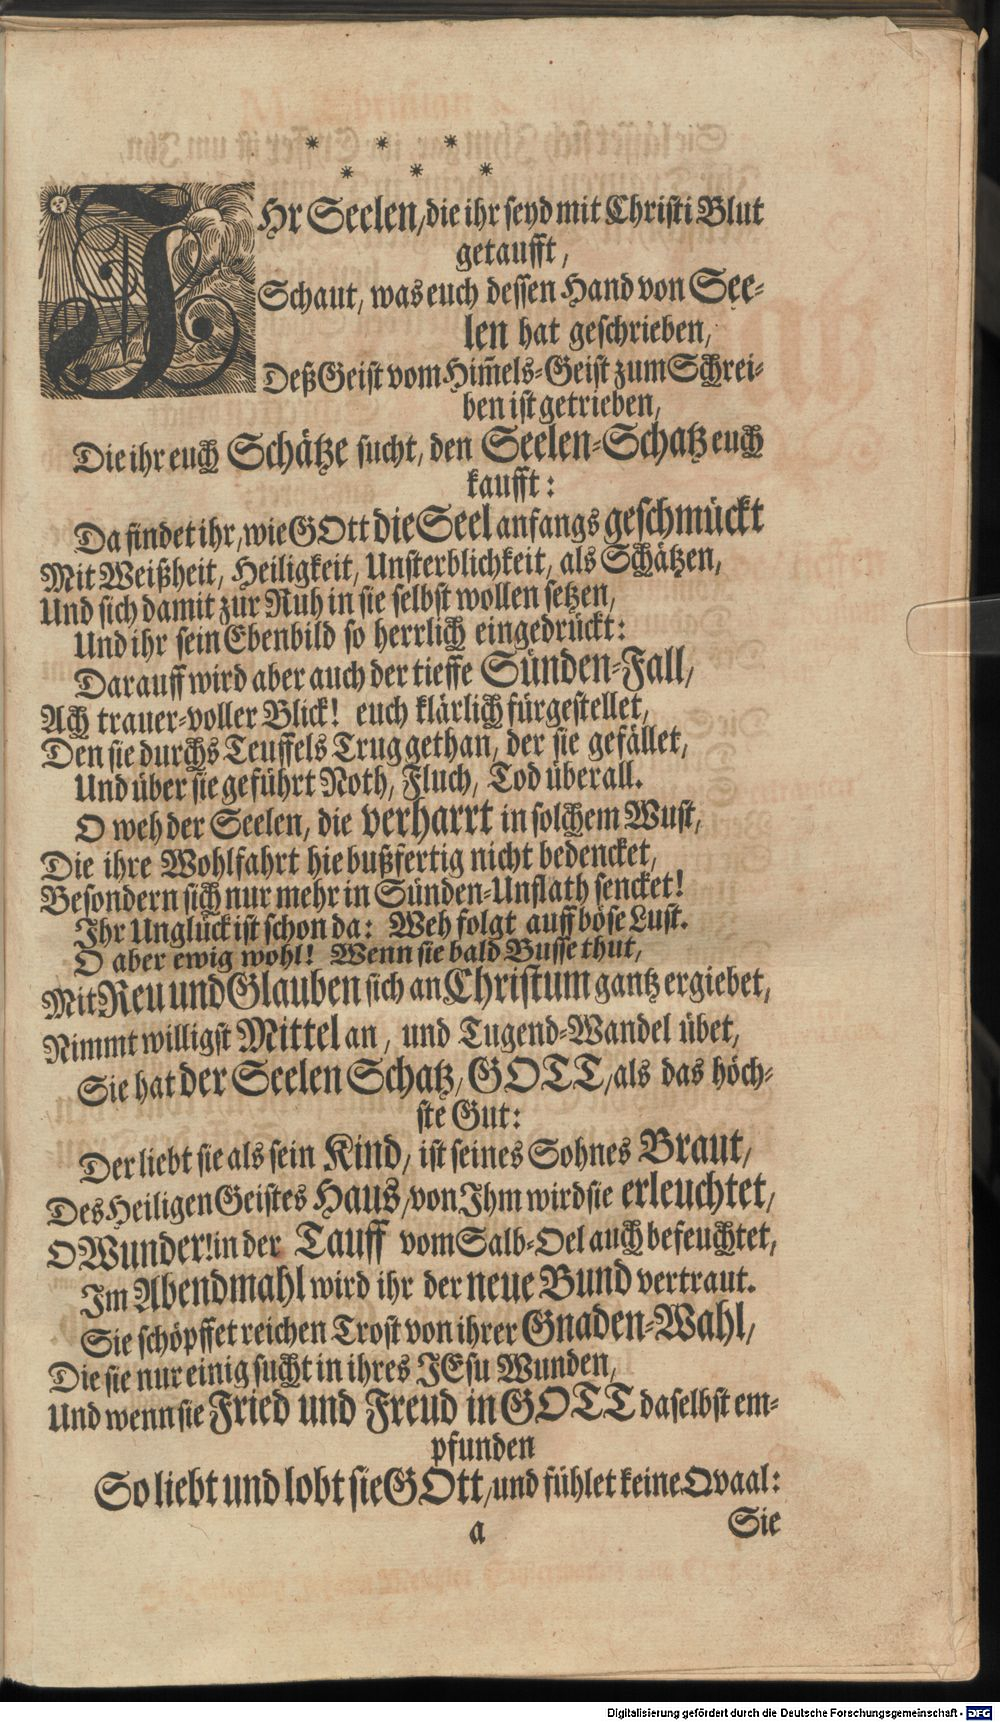 * * *
* * *
IHr Seelen, die ihr seyd mit Christi Blut
getaufft,
Schaut, was euch dessen Hand von See-
len hat geschrieben,
Deß Geist vom Him̄els-Geist zum Schrei-
ben ist getrieben,
Die ihr euch Schätze sucht, den Seelen-Schatz euch
kaufft:
Da findet ihr, wie GOtt die Seel anfangs geschmückt
Mit Weißheit, Heiligkeit, Unsterblichkeit, als Schätzen,
Und sich damit zur Ruh in sie selbst wollen setzen,
Und ihr sein Ebenbild so herrlich eingedrückt:
Darauff wird aber auch der tieffe Sünden-Fall,
Ach trauer-voller Blick! euch klärlich fürgestellet,
Den sie durchs Teuffels Trug gethan, der sie gefället,
Und über sie geführt Noth, Fluch, Tod überall.
O weh der Seelen, die verharrt in solchem Wust,
Die ihre Wohlfahrt hie bußfertig nicht bedencket,
Besondern sich nur mehr in Sünden-Unflath sencket!
Ihr Unglück ist schon da: Weh folgt auff böse Lust.
O aber ewig wohl! Wenn sie bald Busse thut,
Mit Reu und Glauben sich an Christum gantz ergiebet,
Nimmt willigst Mittel an, und Tugend-Wandel übet,
Sie hat der Seelen Schatz, GOTT, als das höch-
ste Gut:
Der liebt sie als sein Kind, ist seines Sohnes Braut,
Des Heiligen Geistes Haus, von Ihm wird sie erleuchtet,
O Wunder! in der Tauff vom Salb-Oel auch befeuchtet,
Im Abendmahl wird ihr der neue Bund vertraut.
Sie schöpffet reichen Trost von ihrer Gnaden-Wahl,
Die sie nur einig sucht in ihres JEsu Wunden,
Und wenn sie Fried und Freud in GOTT daselbst em-
pfunden
So liebt und lobt sie GOtt, und fühlet keine Qvaal:
a
Sie
Digitalisierung gefördert durch die Deutsche Forschungsgemeinschaft - DFG